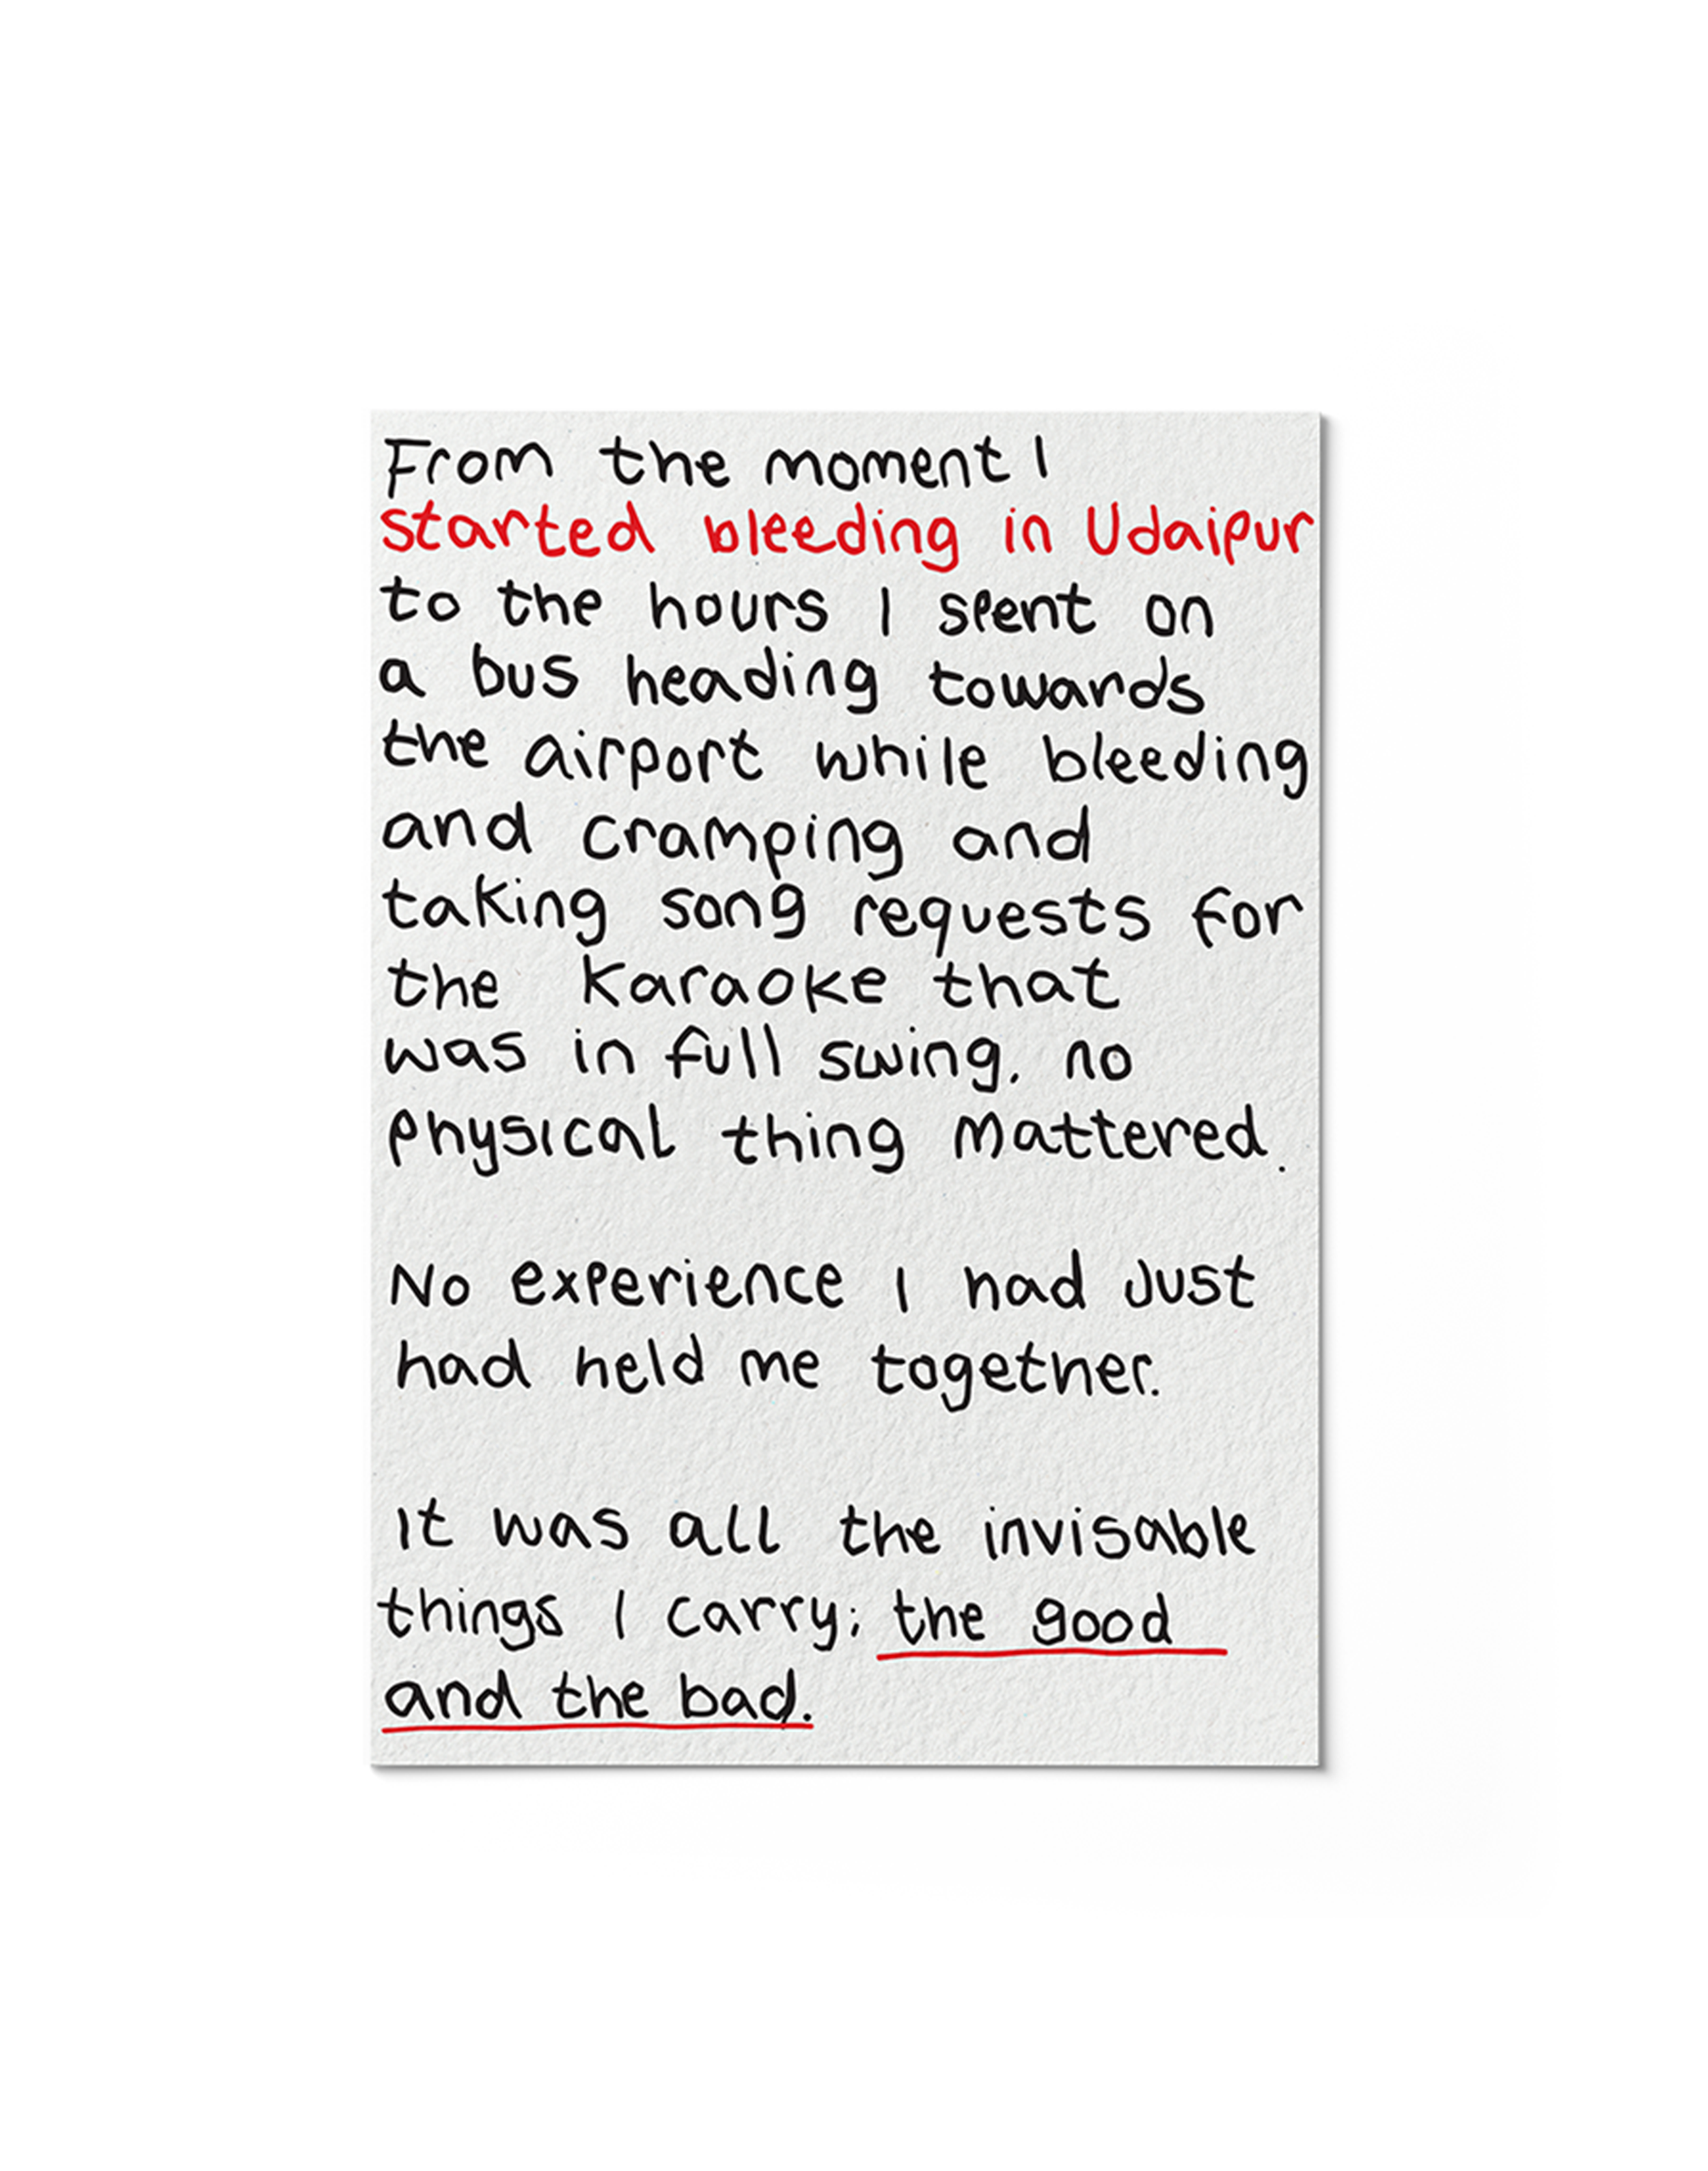 From the moment I
started bleeding in Udaipur
to the hours I spent on
a bus heading towards
the airport while bleeding
and cramping and
taking song requests for
the Karaoke that
was in full swing, no
physical thing mattered.
No experience I had Just
had held me together.
It was all the invisable
things I carry; the good
and the bad.